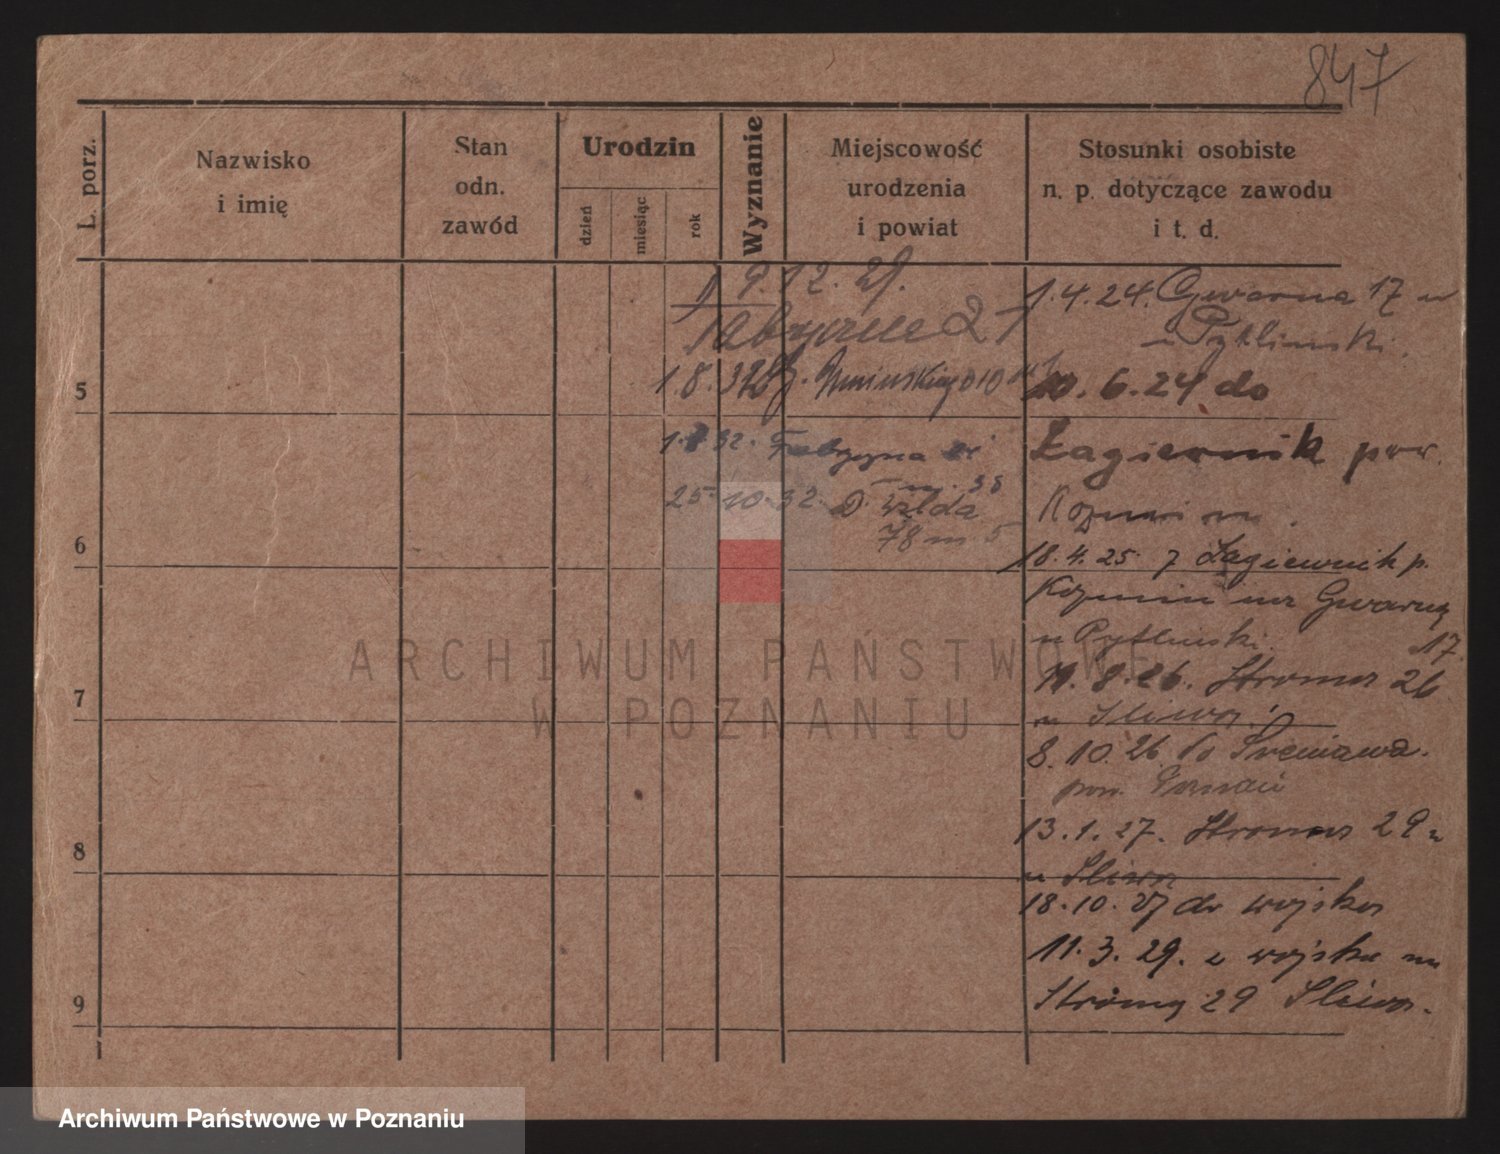 847
L. porz.
Nazwisko
i imię
Stan
odn.
zawód
Urodzin
dzień
miesiąc
rok
Wyznanie
Miejscowość
urodzenia
i powiat
Stosunki osobiste
n. p. dotyczące zawodu
i t. d.
9.12.29.
1.8.32
1.8.32. Fabryczna
25.10.32. D. Wilda
78 m 5
5
6
7
8
9
1.4.24. Gwarna 17
u Pytlinski.
10.6.24 do
Łagiewnik pow.
Kozmin
18.4.25 z Łagiewnik p.
Kozmin na Gwarną
u Pytlinski. 17.
11.8.26. Stroma 26
u Sliwa.
8.10.26 do Sreniawa.
pow.
13.1.27. Stroma 29
u Sliwa
18.10.27 do wojska
11.3.29. z wojska na
Stromą 29 Sliwa.
ARCHIWUM PAŃSTWOWE
W POZNANIU
Archiwum Państwowe w Poznaniu